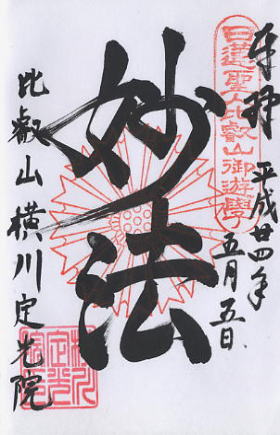 奉拝
平成廿四年
五月五日
日蓮聖人比叡山御遊學
妙法
比叡山横川定光院